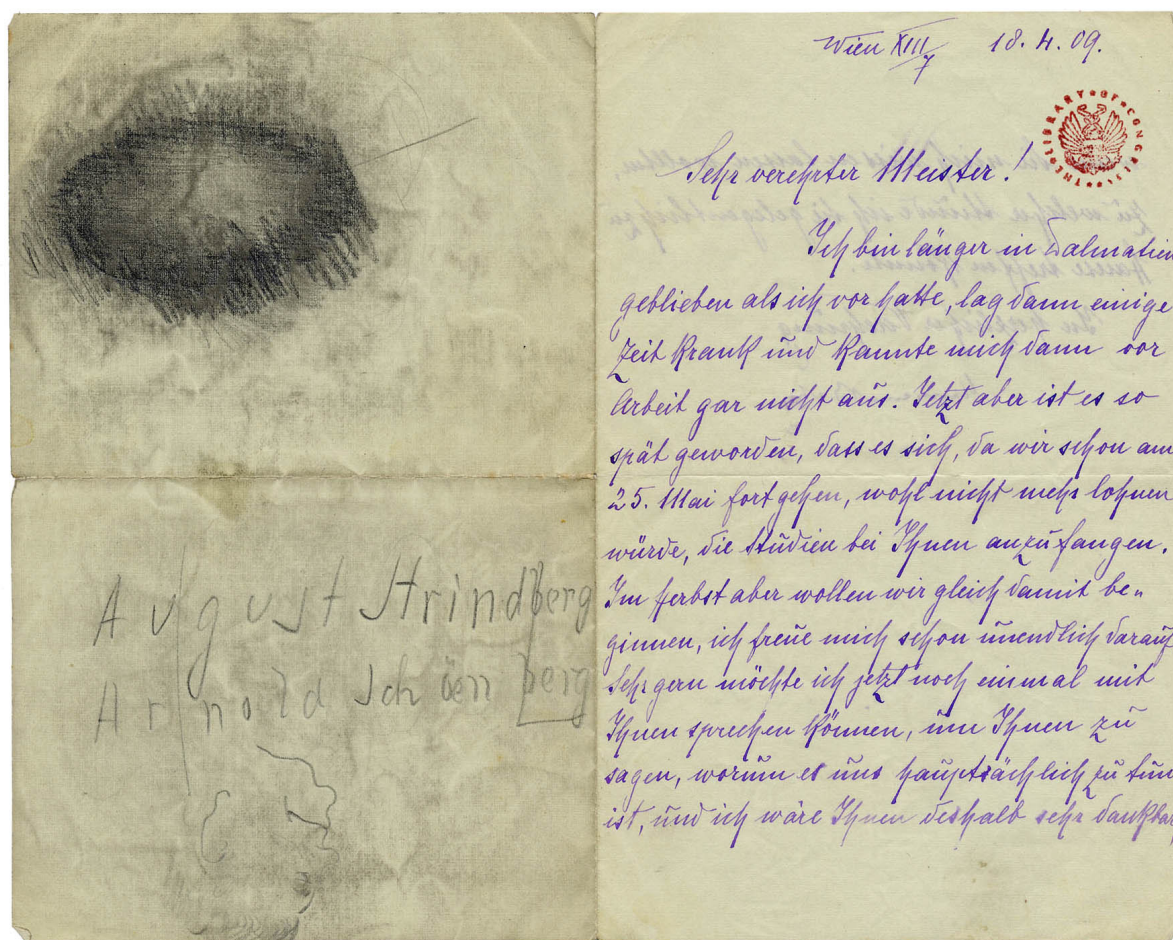 August Strindberg
Arnold Schönberg
Wien XIII/7 18.4.09.
THE LIBRARY OF CONGRESS
Sehr verehrter Meister!
Ich bin länger in Dalmatien
geblieben als ich vorhatte, lag dann einige
Zeit krank und kannte mich dann vor
Arbeit gar nicht aus. Jetzt aber ist es so
spät geworden, dass es sich, da wir schon am
25. Mai fortgehen, wohl nicht mehr lohnen
würde, die Studien bei Ihnen anzufangen.
Im Herbst aber wollen wir gleich damit be„
ginnen, ich freue mich schon unendlich darauf.
Sehr gern möchte ich jetzt noch einmal mit
Ihnen sprechen können, um Ihnen zu
sagen, worum es uns hauptsächlich zu tun
ist, und ich wäre Ihnen deshalb sehr dankbar,